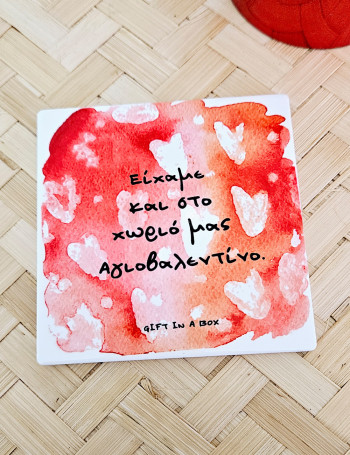 Είχαμε
και στο
χωριό μας
Αγιοβαλεντίνο.
GIFT IN A BOX